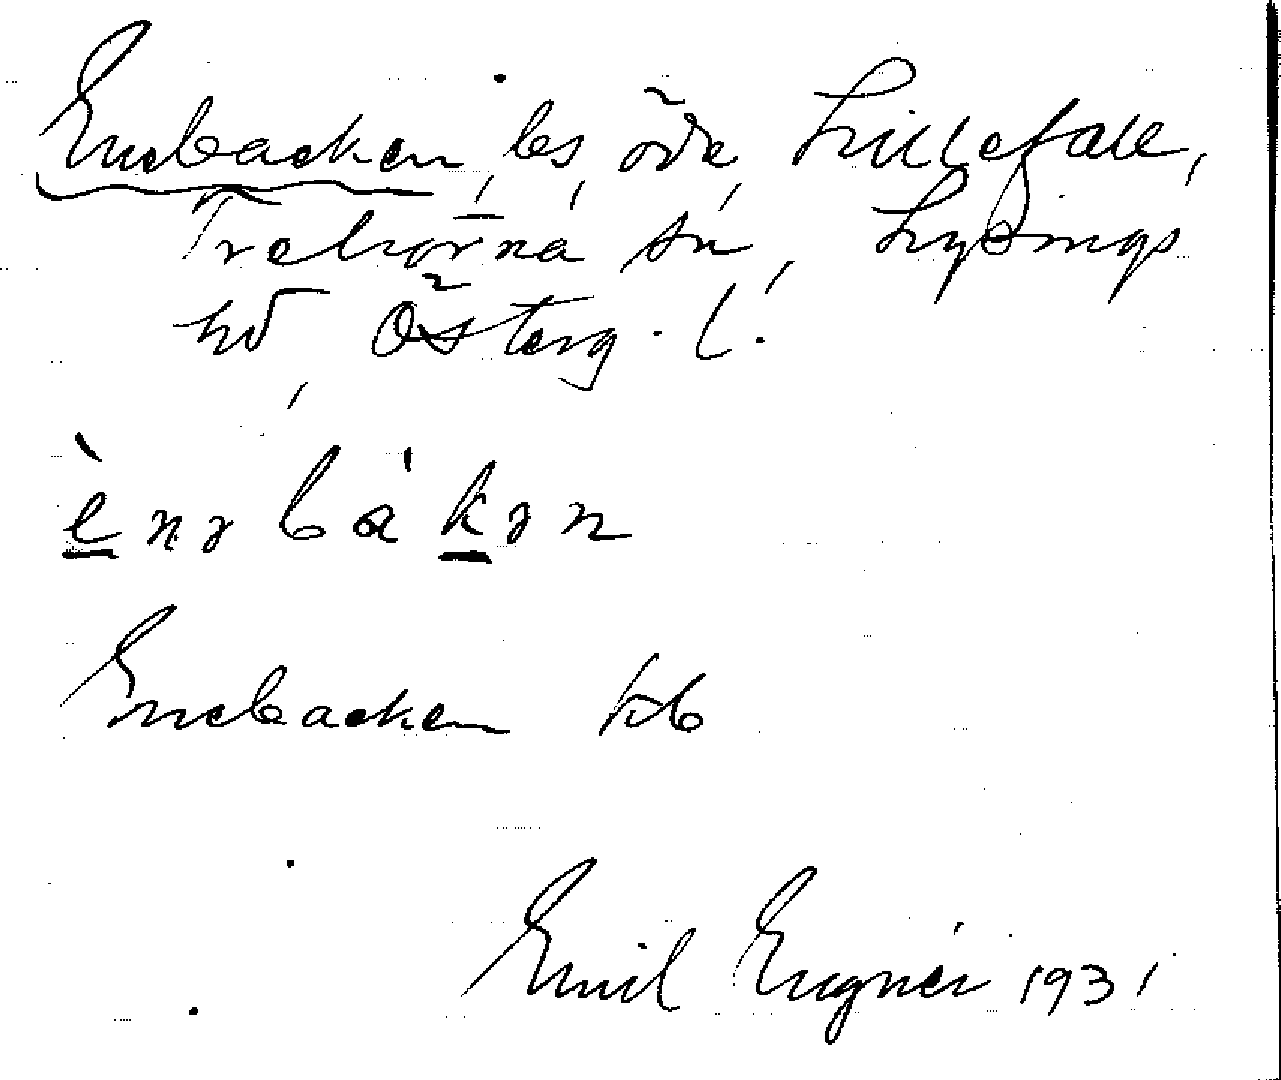 Enebacken, ls, öde, Lillefall,
Trehörna sn, Lysings
hd, Österg. l.
ènəbàkən
Enebacken kb
Emil Engnér 1931